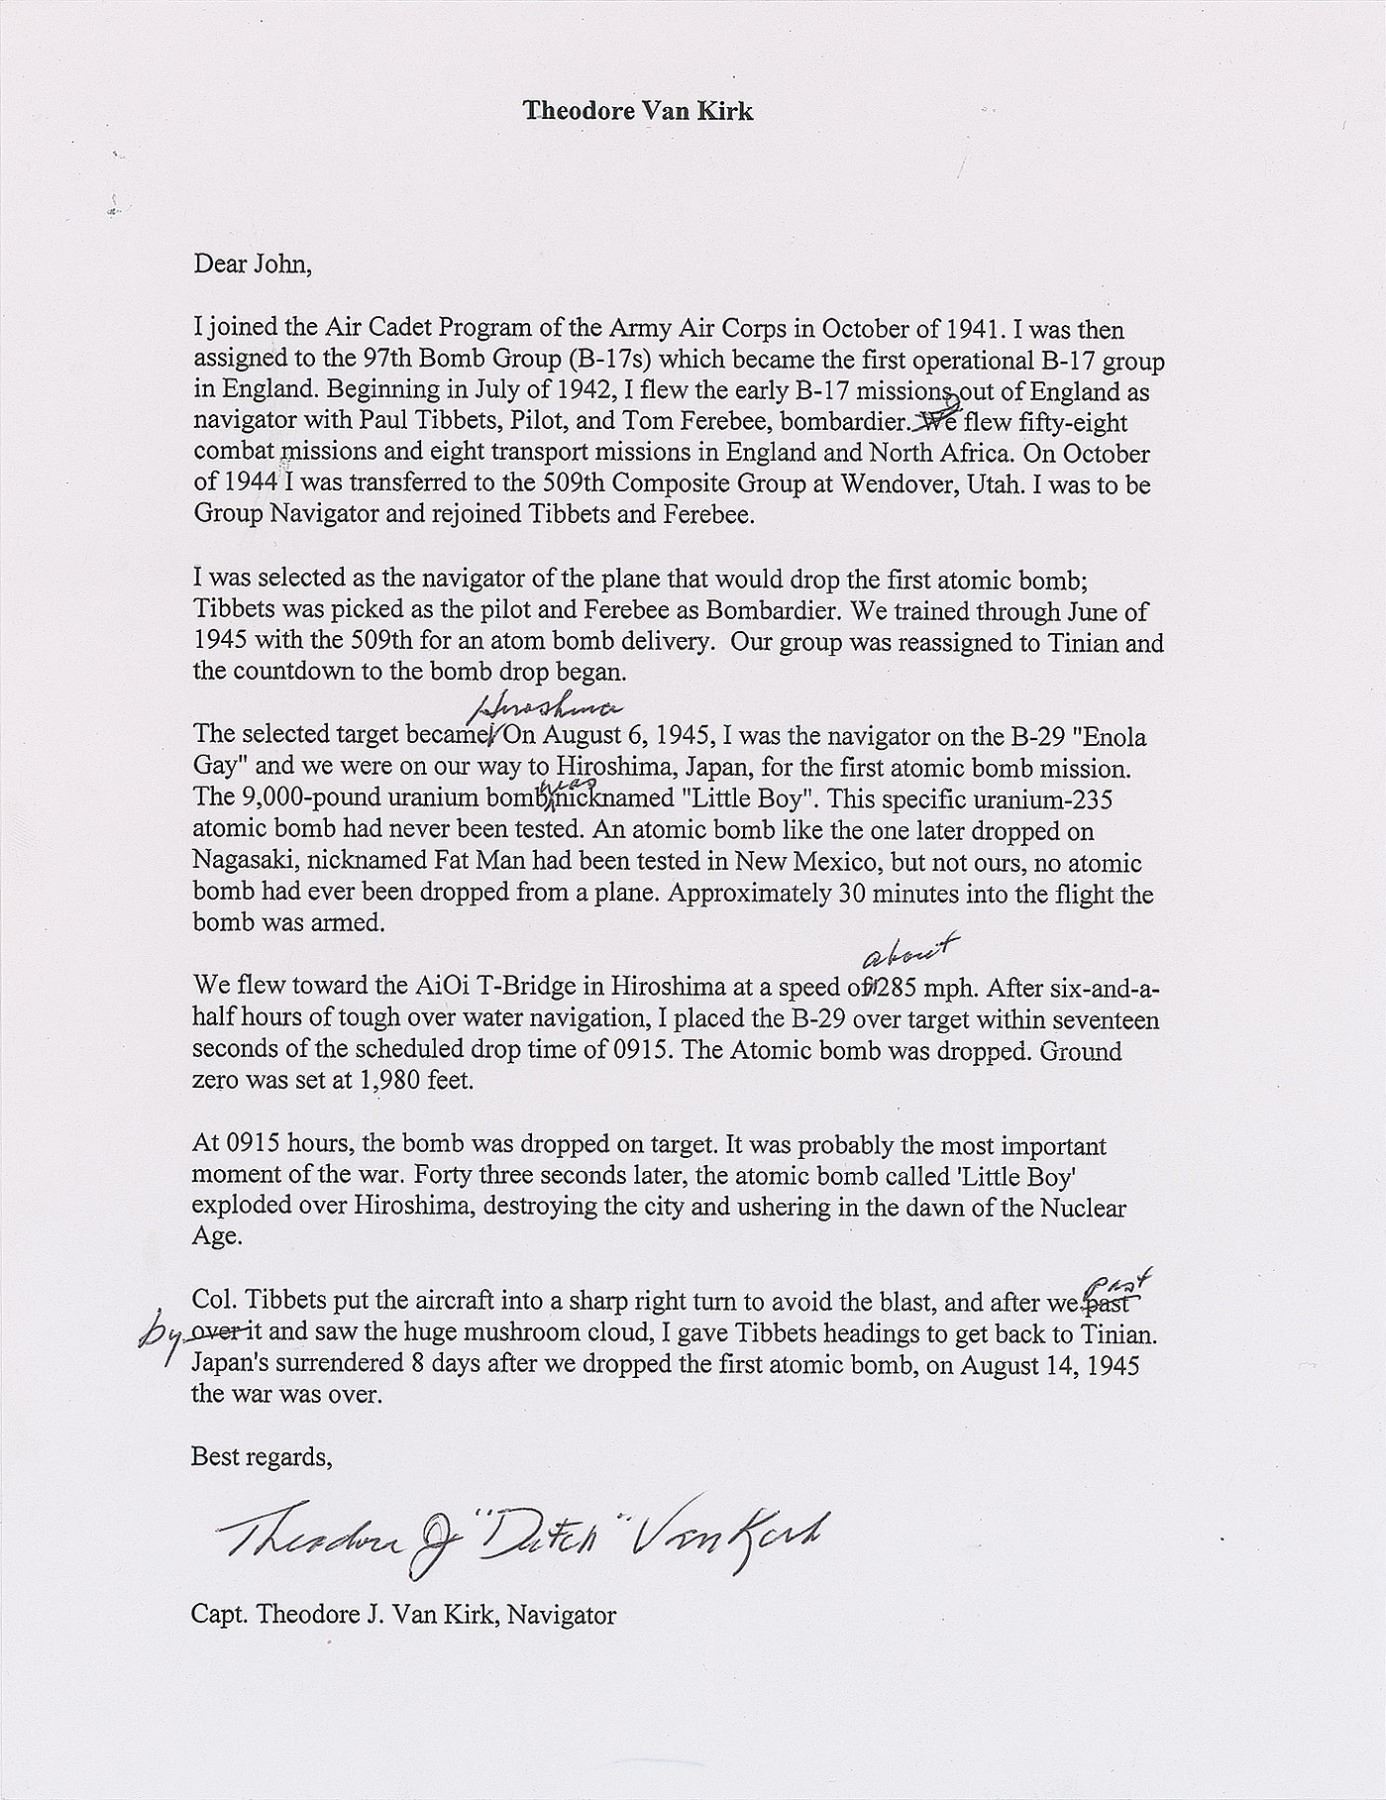 Theodore Van Kirk
Dear John,
I joined the Air Cadet Program of the Army Air Corps in October of 1941. I was then
assigned to the 97th Bomb Group (B-17s) which became the first operational B-17 group
in England. Beginning in July of 1942, I flew the early B-17 missions out of England as
navigator with Paul Tibbets, Pilot, and Tom Ferebee, bombardier. We flew fifty-eight
combat missions and eight transport missions in England and North Africa. On October
of 1944 I was transferred to the 509th Composite Group at Wendover, Utah. I was to be
Group Navigator and rejoined Tibbets and Ferebee.
I was selected as the navigator of the plane that would drop the first atomic bomb;
Tibbets was picked as the pilot and Ferebee as Bombardier. We trained through June of
1945 with the 509th for an atom bomb delivery. Our group was reassigned to Tinian and
the countdown to the bomb drop began.
Hiroshima
The selected target became On August 6, 1945, I was the navigator on the B-29 "Enola
Gay" and we were on our way to Hiroshima, Japan, for the first atomic bomb mission.
was
The 9,000-pound uranium bomb nicknamed "Little Boy". This specific uranium-235
atomic bomb had never been tested. An atomic bomb like the one later dropped on
Nagasaki, nicknamed Fat Man had been tested in New Mexico, but not ours, no atomic
bomb had ever been dropped from a plane. Approximately 30 minutes into the flight the
bomb was armed.
about
We flew toward the AiOi T-Bridge in Hiroshima at a speed of 285 mph. After six-and-a-
half hours of tough over water navigation, I placed the B-29 over target within seventeen
seconds of the scheduled drop time of 0915. The Atomic bomb was dropped. Ground
zero was set at 1,980 feet.
At 0915 hours, the bomb was dropped on target. It was probably the most important
moment of the war. Forty three seconds later, the atomic bomb called 'Little Boy'
exploded over Hiroshima, destroying the city and ushering in the dawn of the Nuclear
Age.
past
Col. Tibbets put the aircraft into a sharp right turn to avoid the blast, and after we past
by over it and saw the huge mushroom cloud, I gave Tibbets headings to get back to Tinian.
Japan's surrendered 8 days after we dropped the first atomic bomb, on August 14, 1945
the war was over.
Best regards,
Theodore J "Dutch" Van Kirk
Capt. Theodore J. Van Kirk, Navigator